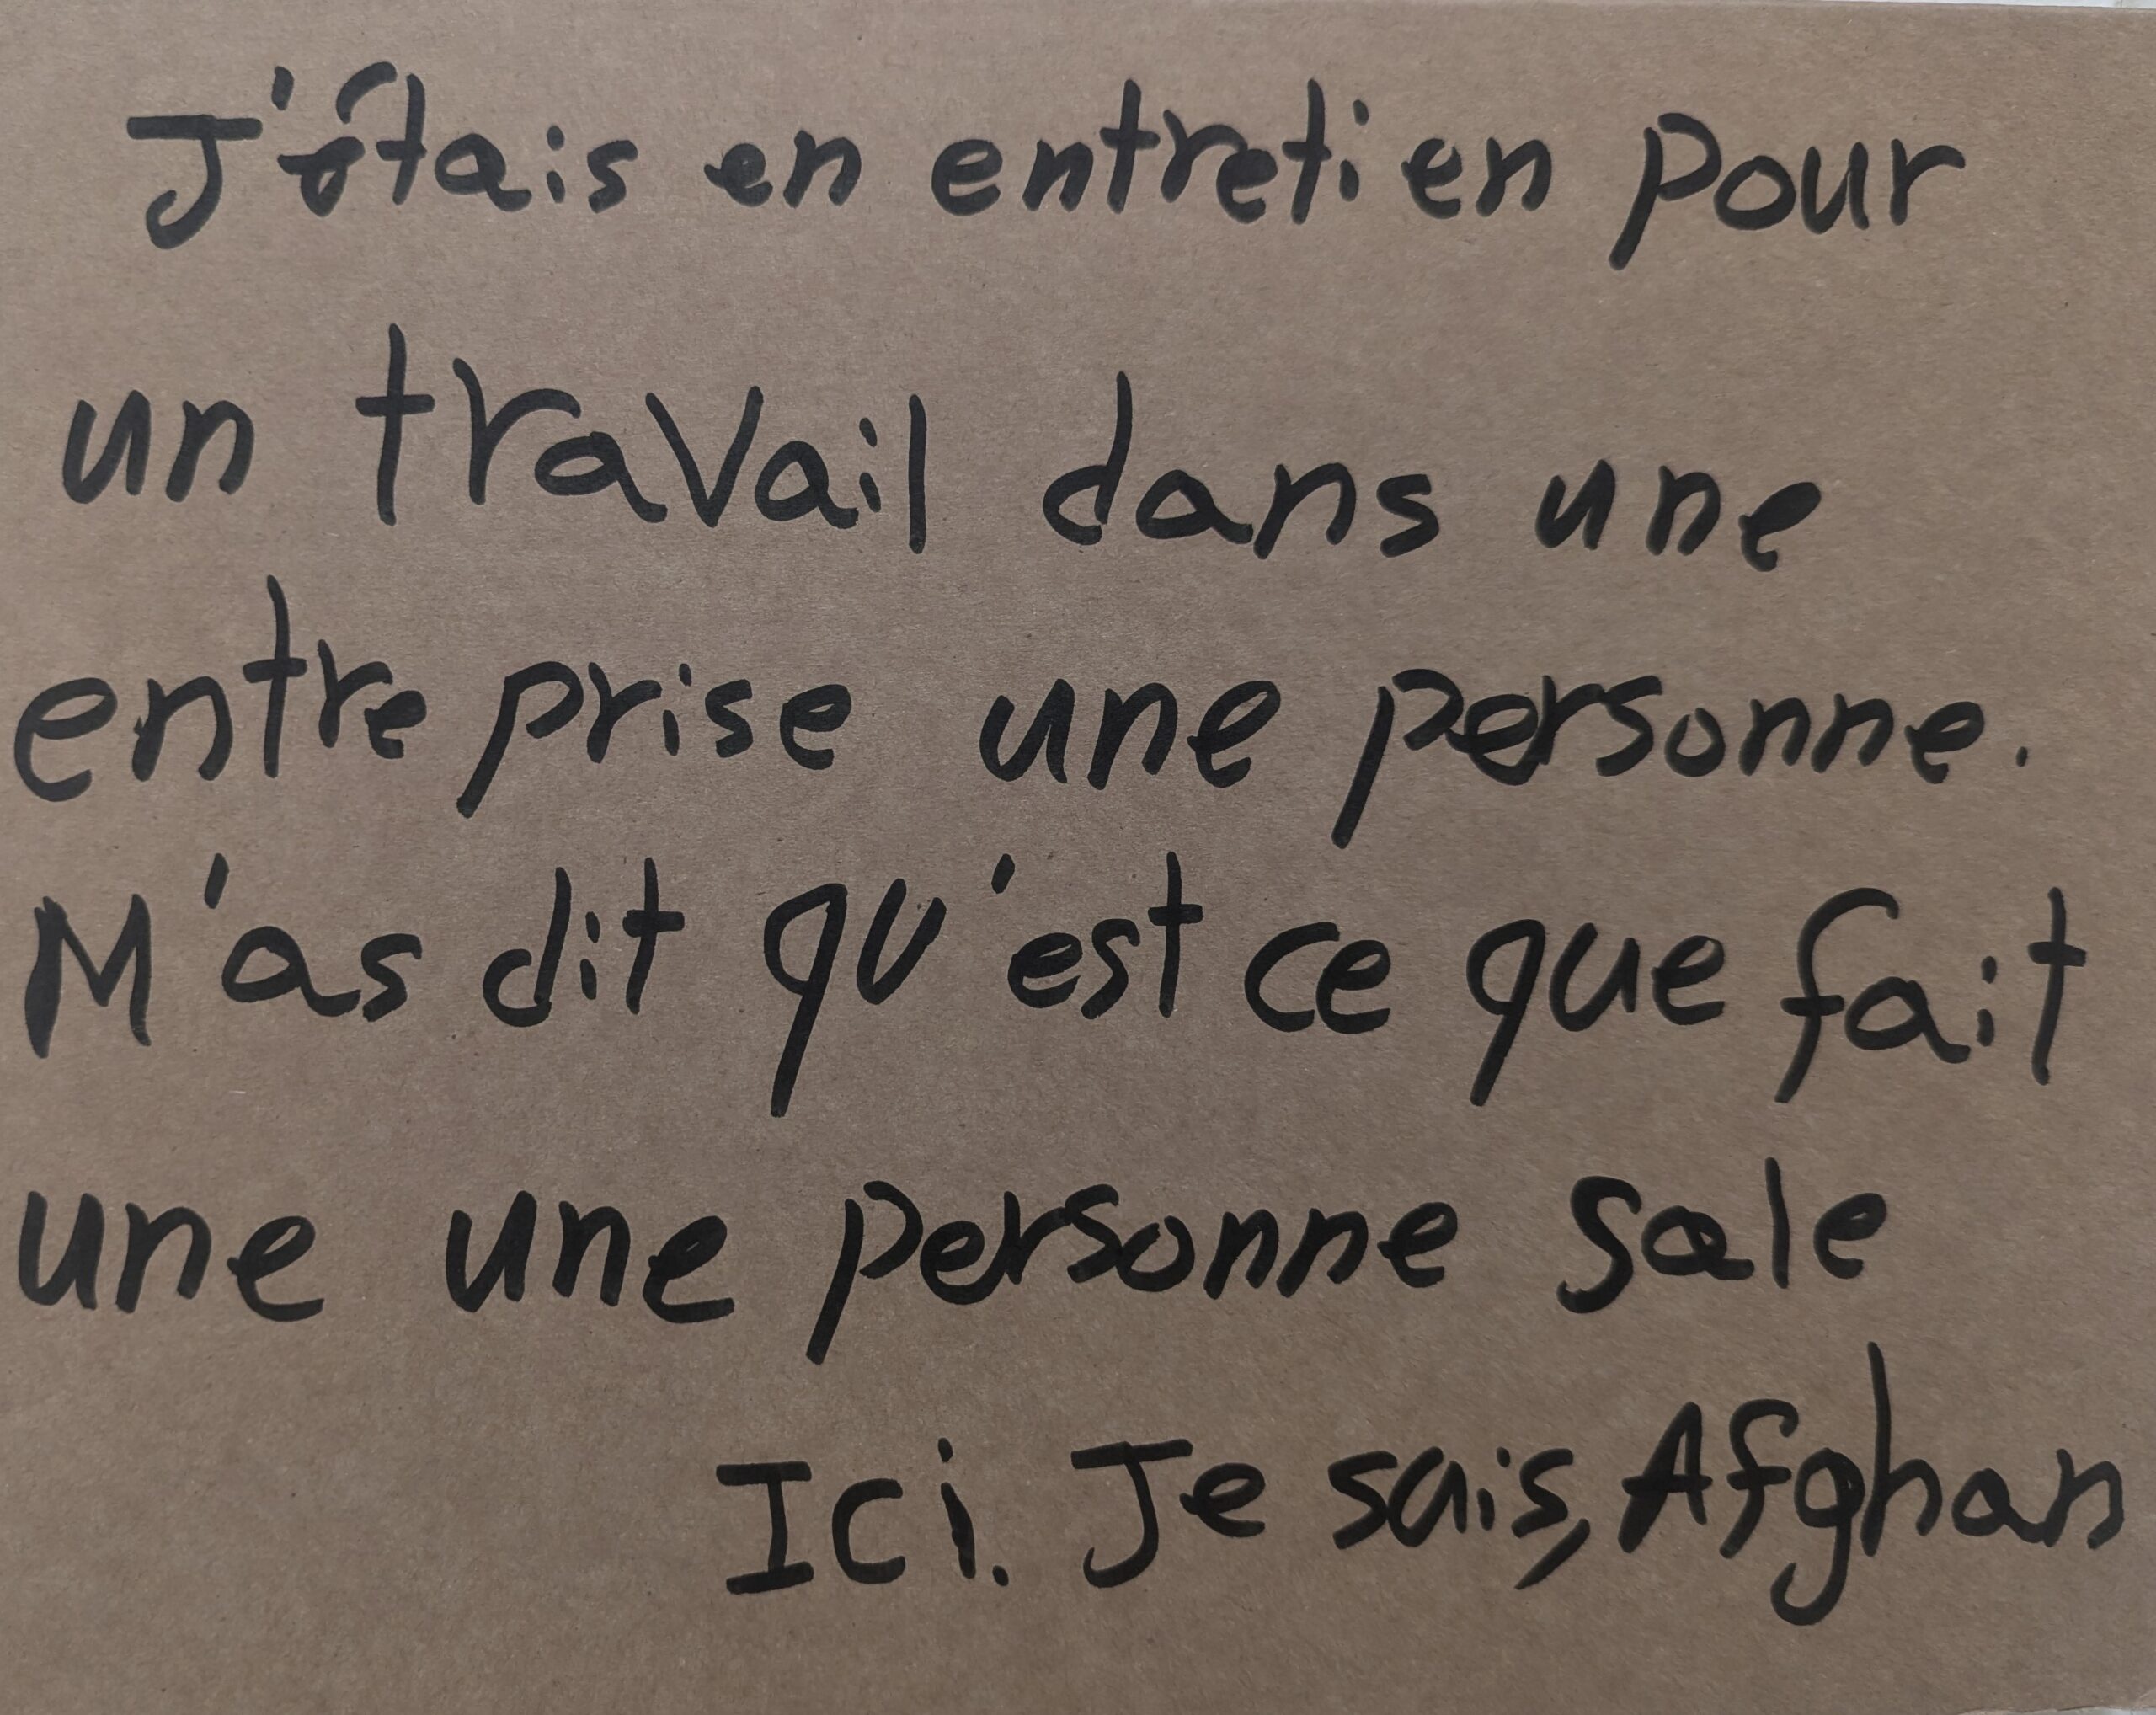 J'étais en entretien pour
un travail dans une
entreprise une personne.
M'as dit qu'est ce que fait
une une personne sale
Ici. Je sais, Afghan